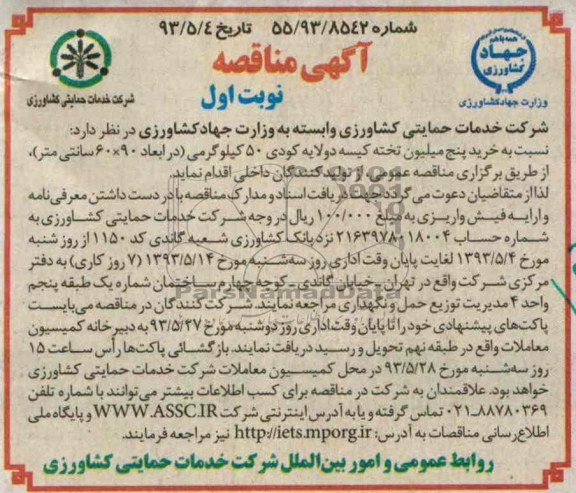 شماره ۵۵/۹۳/۸۵۴۲ تاریخ ۹۳/۵/۴
همه با هم
جهاد
کشاورزی
وزارت جهادکشاورزی
آگهی مناقصه
نوبت اول
شرکت خدمات حمایتی کشاورزی
شرکت خدمات حمایتی کشاورزی وابسته به وزارت جهادکشاورزی در نظر دارد:
نسبت به خرید پنج میلیون تخته کیسه دولایه کودی ۵۰ کیلوگرمی (در ابعاد ۹۰×۶۰ سانتی متر)،
از طریق برگزاری مناقصه عمومی از تولیدکنندگان داخلی اقدام نماید.
لذا از متقاضیان دعوت می گردد جهت دریافت اسناد و مدارک مناقصه با در دست داشتن معرفی نامه
و ارایه فیش واریزی به مبلغ ۱۰۰/۰۰۰ ریال در وجه شرکت خدمات حمایتی کشاورزی به
شماره حساب ۲۱۶۳۹۷۸۰۱۸۰۰۴ نزد بانک کشاورزی شعبه گاندی کد ۱۱۵۰ از روز شنبه
مورخ ۱۳۹۳/۵/۴ لغایت پایان وقت اداری روز سه شنبه مورخ ۱۳۹۳/۵/۱۴ (۷ روز کاری) به دفتر
مرکزی شرکت واقع در تهران - خیابان گاندی - کوچه چهارم ساختمان شماره یک طبقه پنجم
واحد ۴ مدیریت توزیع حمل و نگهداری مراجعه نمایند. شرکت کنندگان در مناقصه می بایست
پاکت های پیشنهادی خود را تا پایان وقت اداری روز دوشنبه مورخ ۹۳/۵/۲۷ به دبیرخانه کمیسیون
معاملات واقع در طبقه نهم تحویل و رسید دریافت نمایند. بازگشائی پاکت ها رأس ساعت ۱۵
روز سه شنبه مورخ ۹۳/۵/۲۸ در محل کمیسیون معاملات شرکت خدمات حمایتی کشاورزی
خواهد بود. علاقمندان به شرکت در مناقصه برای کسب اطلاعات بیشتر می توانند با شماره تلفن
۰۲۱-۸۸۷۸۰۳۶۹ تماس گرفته و یا به آدرس اینترنتی شرکت WWW.ASSC.IR و پایگاه ملی
اطلاع رسانی مناقصات به آدرس: http://iets.mporg.ir نیز مراجعه فرمایند.
روابط عمومی و امور بین الملل شرکت خدمات حمایتی کشاورزی
ParsNamadData